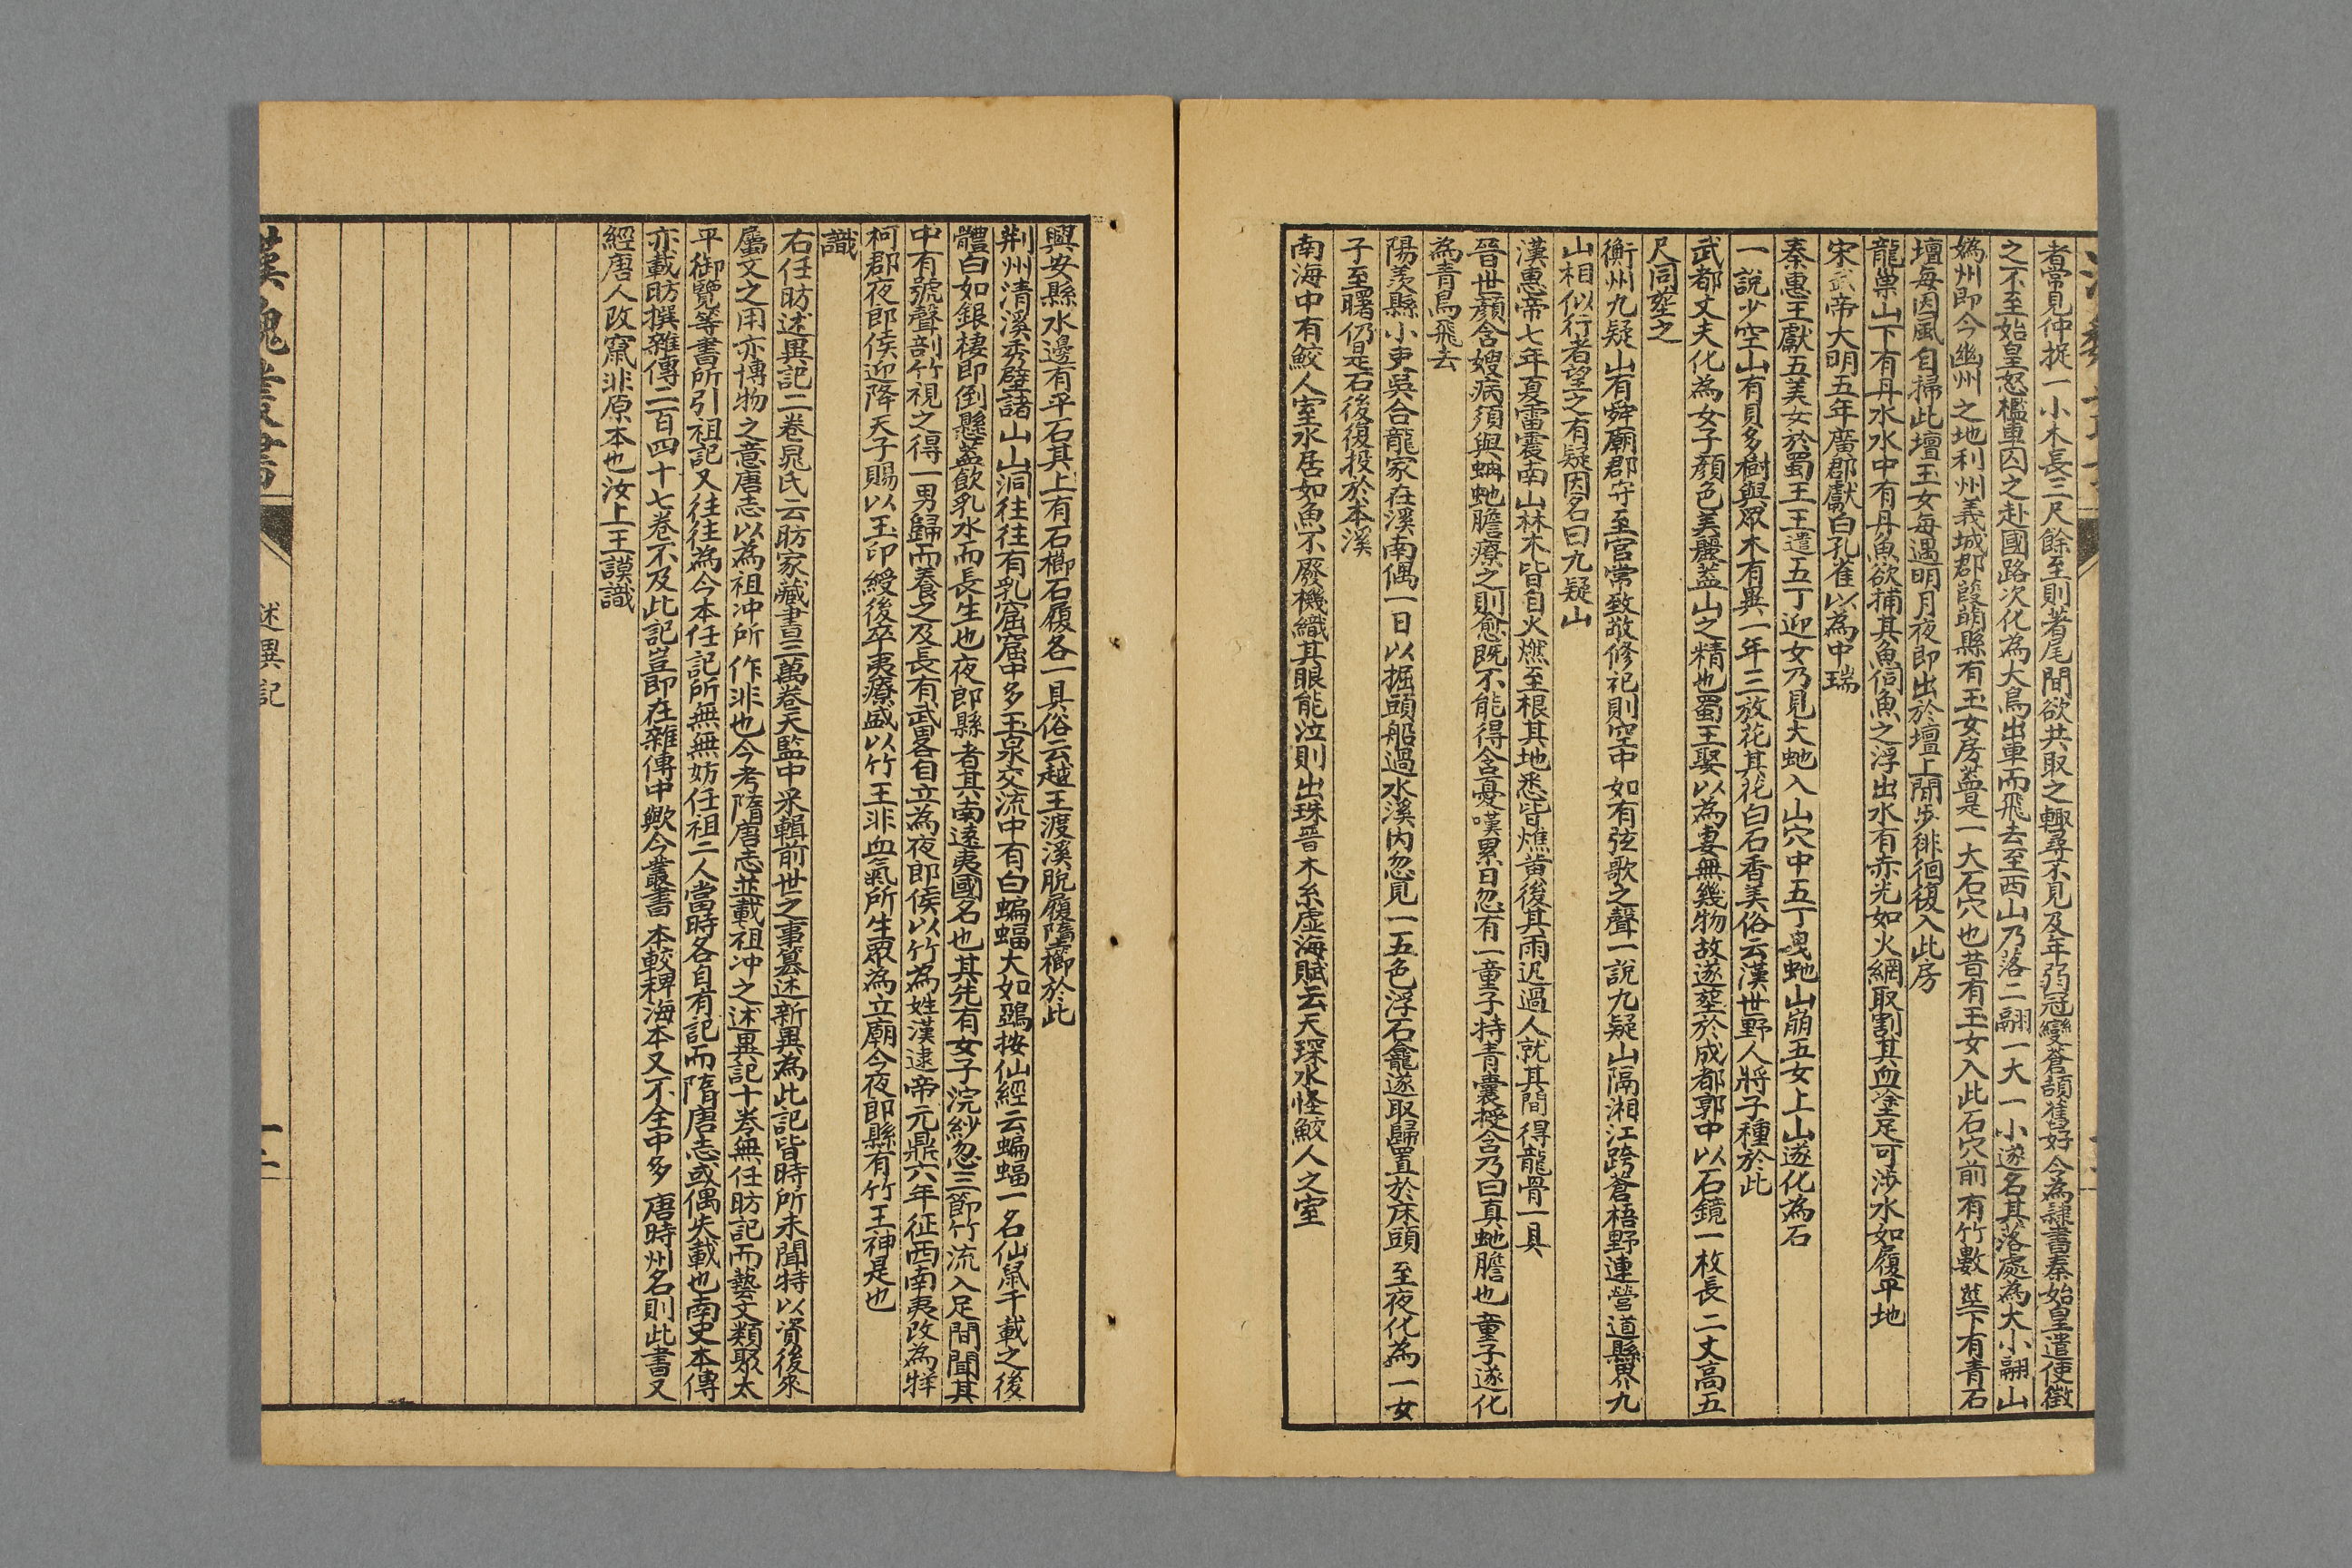 者常見仲捉一小木長三尺餘至則著尾間欲共取之輙尋不見及年弱冠變蒼頡舊好今為隷書秦始皇遣使徵
之不至始皇怒檻車囚之赴國路次化為大鳥出車而飛去至西山乃落二翮一大一小遂名其落處為大小翮山
嬀州即今幽州之地利州義城郡葭萌縣有玉女房葢是一大石穴也昔有玉女入此石穴前有竹數莖下有青石
壇每因風自掃此壇玉女每遇明月夜即出於壇上閒步徘徊復入此房
龍巢山下有丹水水中有丹魚欲捕其魚伺魚之浮出水有赤光如火網取割其血塗足可涉水如履平地
宋武帝大明五年廣郡獻白孔雀以為中瑞
秦惠王獻五美女於蜀王王遣五丁迎女乃見大虵入山穴中五丁曳虵山崩五女上山遂化為石
一說少空山有貝多樹與眾木有異一年三放花其花白石香美俗云漢世野人將子種於此
武都丈夫化為女子顏色美麗葢山之精也蜀王娶以為妻無幾物故遂塟於成都郭中以石鏡一枚長二丈高五
尺同塟之
衡州九疑山有舜廟郡守至官常致敬修祀則空中如有弦歌之聲一說九疑山隔湘江跨蒼梧野連營道縣界九
山相似行者望之有疑因名曰九疑山
漢惠帝七年夏雷震南山林木皆自火燃至根其地悉皆燋黄後其雨迟過人就其間得龍骨一具
晉世顏含嫂病須與蚺虵膽療之則愈既不能得含憂嘆累日忽有一童子持青囊授含乃曰真虵膽也童子遂化
為青鳥飛去
陽羨縣小吏吳合龍家在溪南偶一日以掘頭船過水溪内忽見一五色浮石龕遂取歸置於床頭至夜化為一女
子至曙仍是石後復投於本溪
南海中有鮫人室水居如魚不廢機織其眼能泣則出珠晉木糸虛海賦云天琛水怪鮫人之室
興安縣水邊有平石其上有石櫛石履各一具俗云越王渡溪脫履墮櫛於此
荆州清溪秀壁諸山山洞往往有乳窟窟中多玉泉交流中有白蝙蝠大如鵶按仙經云蝙蝠一名仙鼠千載之後
體白如銀棲即倒懸葢飲乳水而長生也夜郎縣者其南遠夷國名也其先有女子浣紗忽三節竹流入足間聞其
中有號聲剖竹視之得一男歸而養之及長有武畧自立為夜郎侯以竹為姓漢逮帝元鼎六年征西南夷改為牂
柯郡夜郎侯迎降天子賜以玉印綬後卒夷療盛以竹王非血氣所生眾為立廟今夜郎縣有竹王神是也
識
右任昉述異記二卷晁氏云昉家藏書三萬卷天監中采輯前世之事纂述新異為此記皆時所未聞特以資後來
屬文之用亦博物之意唐志以為祖冲所作非也今考隋唐志並載祖冲之述異記十卷無任昉記而藝文類聚太
平御覽等書所引祖記又往往為今本任記所無無妨任祖二人當時各自有記而隋唐志或偶失載也南史本傳
亦載昉撰雜傳二百四十七卷不及此記豈即在雜傳中歟今叢書本較稗海本又不全中多唐時州名則此書又
經唐人改竄非原本也汝上王謨識
漢魏叢書
述異記